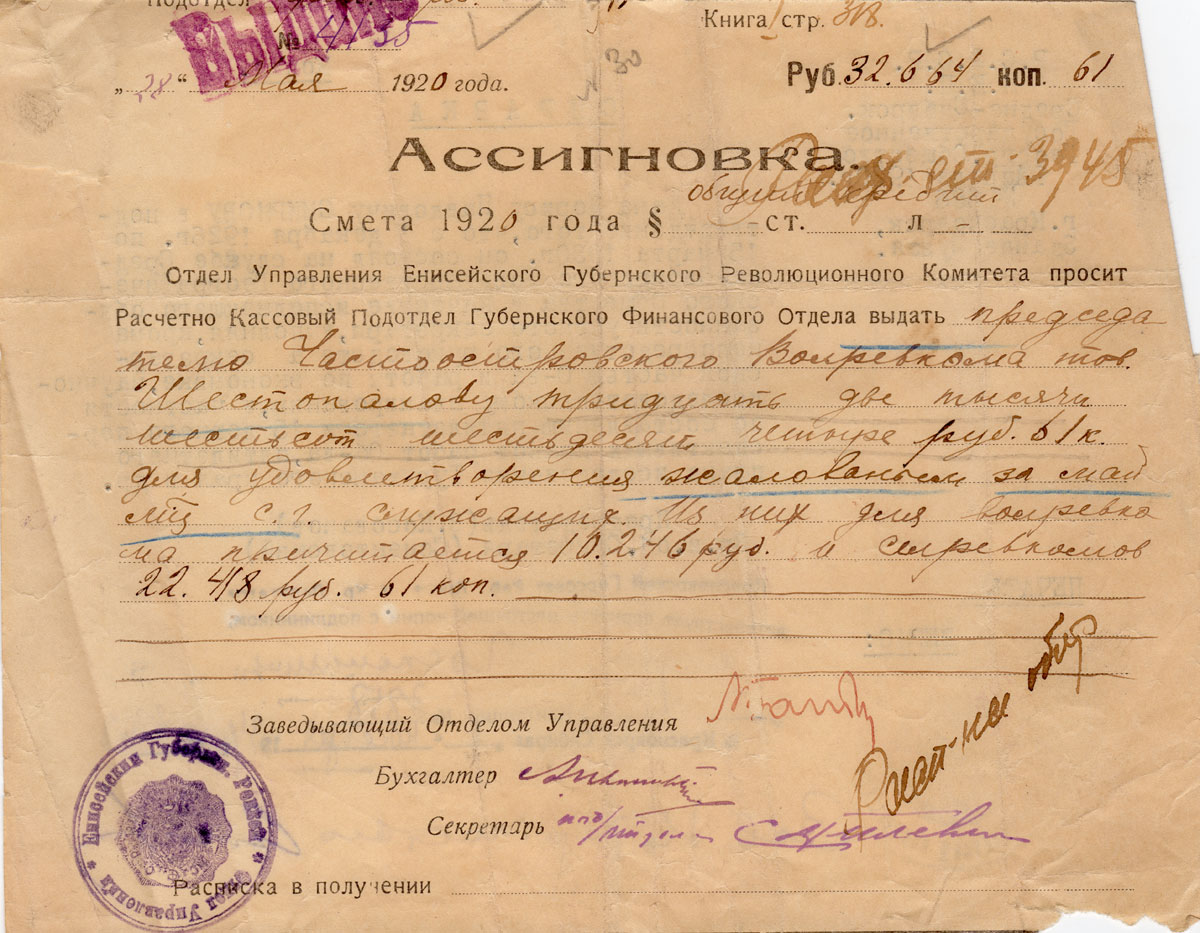 Подотдел
Книга стр. 318.
ВЫДАНО
№ 4735
„28“ Мая 1920 года.
30
Руб. 32.664 коп. 61
Ассигновка.
3945
общий
Смета 1920 года § - ст. л -
Отдел Управления Енисейского Губернского Революционного Комитета просит
Расчетно Кассовый Подотдел Губернского Финансового Отдела выдать председа
телю Частоостровского Волревкома тов.
Шестопалову тридцать две тысячи
шестьсот шестьдесят четыре руб. 61 к.
для удовлетворения жалованьем за май
м-ц с.г. служащих. Из них для волревко
ма причитается 10.246 руб. и сельревкомов
22.418 руб. 61 коп.
Заведывающий Отделом Управления
Бухгалтер
Секретарь п/отдела
Расписка в получении
* Енисейский Губернск. Ревком * Отдел Управления